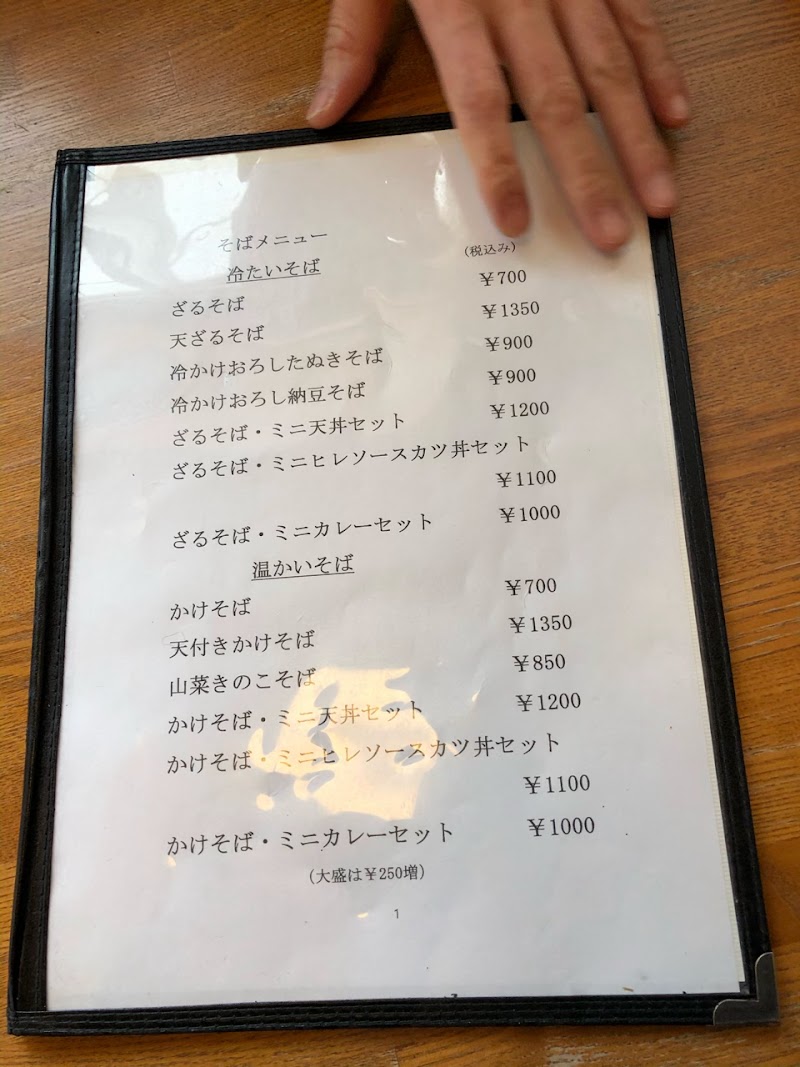 そばメニュー (税込み)
冷たいそば
ざるそば ¥700
天ざるそば ¥1350
冷かけおろしたぬきそば ¥900
冷かけおろし納豆そば ¥900
ざるそば・ミニ天丼セット ¥1200
ざるそば・ミニヒレソースカツ丼セット
¥1100
ざるそば・ミニカレーセット ¥1000
温かいそば
かけそば ¥700
天付きかけそば ¥1350
山菜きのこそば ¥850
かけそば・ミニ天丼セット ¥1200
かけそば・ミニヒレソースカツ丼セット
¥1100
かけそば・ミニカレーセット ¥1000
(大盛は¥250増)
1